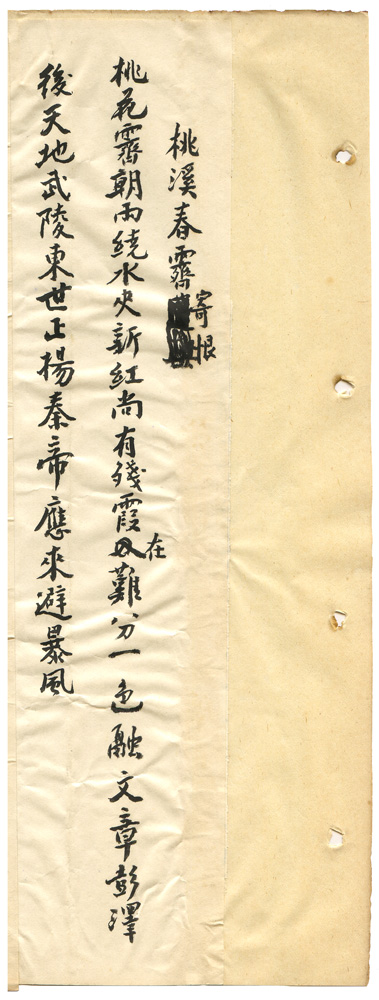 桃溪春霽寄恨
桃花霽朝雨繞水夾新紅尚有殘霞在難分一色融文章彭澤
後天地武陵東世正揚秦帝應來避暴風